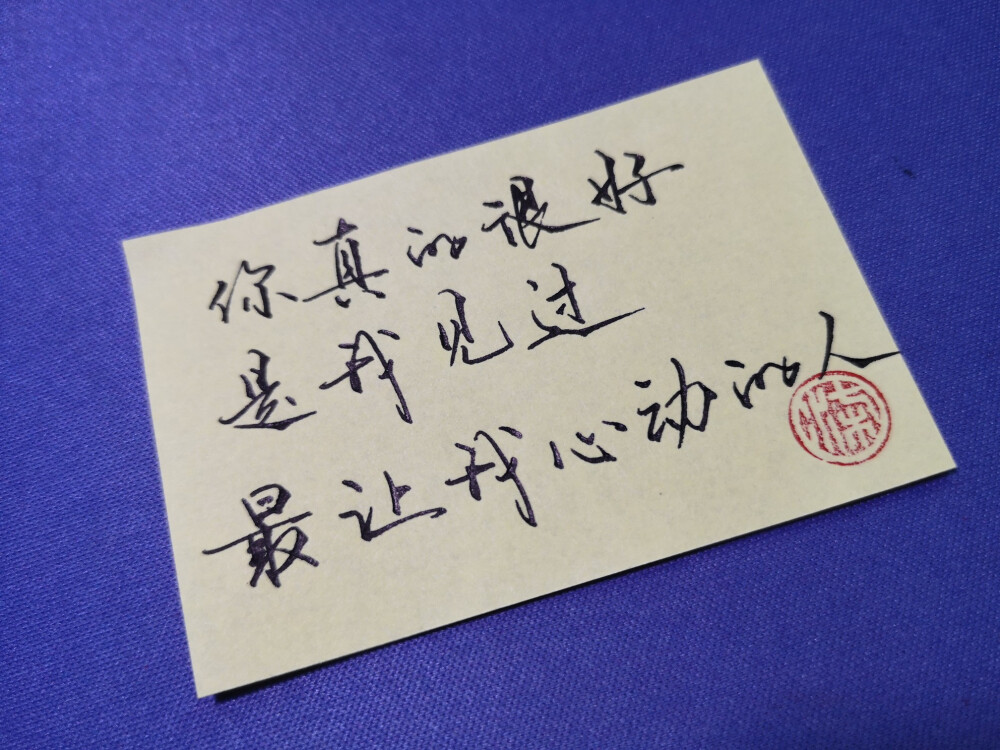 你真的很好
是我见过
最让我心动的人